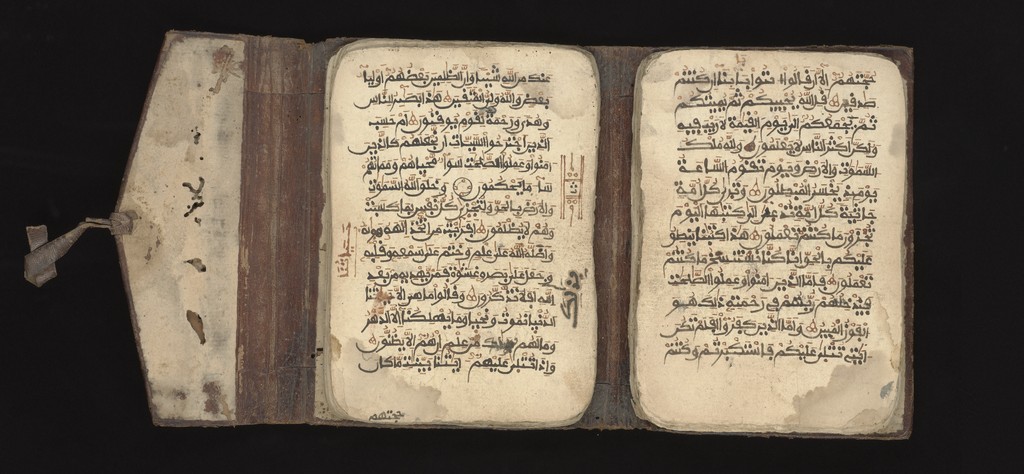 عنك من الله شيئا وان الظلمين بعضهم اوليا
بعض والله ولي المتقين هذا بصير للناس
وهدى ورحمة لقوم يوقنون ام حسب
الذين اجترحوا السيئات ان نجعلهم كالذين
امنوا وعملوا الصلحت سوا محياهم ومماتهم
سا ما يحكمون وخلق الله السموت
والارض بالحق ولتجزى كل نفس بما كسبت
وهم لا يظلمون افريت من اتخذ الهه هويه
واضله الله على علم وختم على سمعه وقلبه
وجعل على بصره غشوة فمن يهديه من بعد
الله افلا تذكرون وقالوا ما هي الا حياتنا
الدنيا نموت ونحيا وما يهلكنا الا الدهر
وما لهم بذلك من علم ان هم الا يظنون
واذا تتلى عليهم ايتنا بينت ما كان
حجتهم
حجتهم الا ان قالوا ايتوا بابائنا ان كنتم
صدقين قل الله يحييكم ثم يميتكم
ثم يجمعكم الى يوم القيمة لا ريب فيه
ولكن اكثر الناس لا يعلمون ولله ملك
السموت والارض ويوم تقوم الساعة
يوميذ يخسر المبطلون وترى كل امة
جاثية كل امة تدعى الى كتبها اليوم
تجزون ما كنتم تعملون هذا كتبنا ينطق
عليكم بالحق انا كنا نستنسخ ما كنتم
تعملون فاما الذين امنوا وعملوا الصلحت
فيدخلهم ربهم في رحمته ذلك هو
الفوز المبين واما الذين كفروا افلم تكن
ايتي تتلى عليكم فاستكبرتم وكنتم